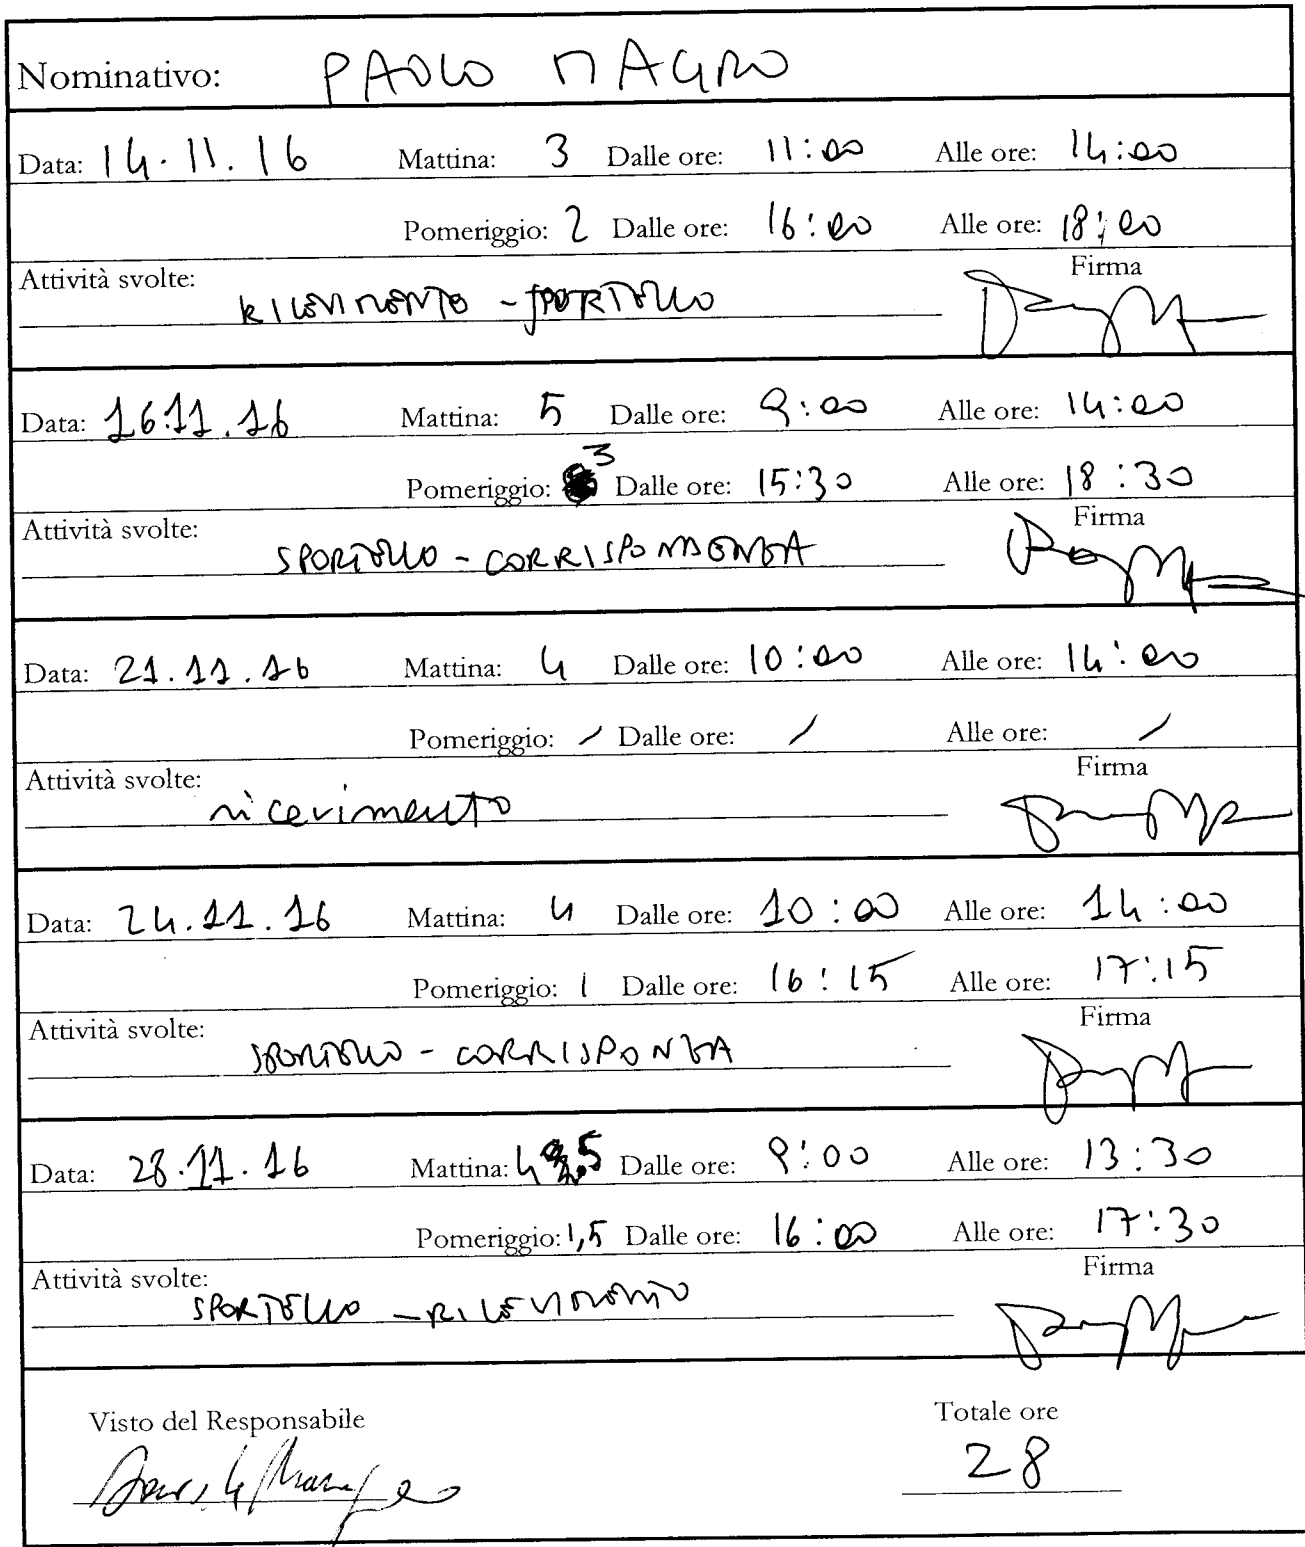 Nominativo: PAOLO MAGRO
Data: 14.11.16 Mattina: 3 Dalle ore: 11:00 Alle ore: 14:00
Pomeriggio: 2 Dalle ore: 16:00 Alle ore: 18:00
Attività svolte: Firma
RICEVIMENTO - SPORTELLO
Data: 16.11.16 Mattina: 5 Dalle ore: 9:00 Alle ore: 14:00
Pomeriggio: 3 Dalle ore: 15:30 Alle ore: 18:30
Attività svolte: Firma
SPORTELLO - CORRISPONDENZA
Data: 21.11.16 Mattina: 4 Dalle ore: 10:00 Alle ore: 14:00
Pomeriggio: / Dalle ore: / Alle ore: /
Attività svolte: Firma
ricevimento
Data: 24.11.16 Mattina: 4 Dalle ore: 10:00 Alle ore: 14:00
Pomeriggio: 1 Dalle ore: 16:15 Alle ore: 17:15
Attività svolte: Firma
SPORTELLO - CORRISPONZA
Data: 28.11.16 Mattina: 4,5 Dalle ore: 9:00 Alle ore: 13:30
Pomeriggio: 1,5 Dalle ore: 16:00 Alle ore: 17:30
Attività svolte: Firma
SPORTELLO - RICEVIMENTO
Visto del Responsabile Totale ore
28